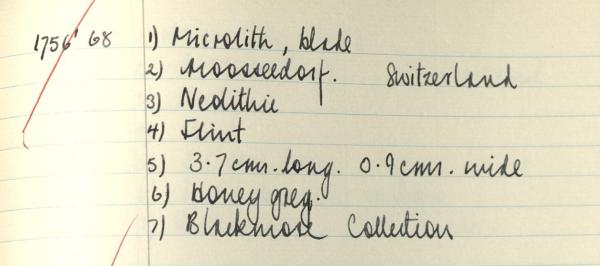 1756' 68 1) Microlith, blade
2) Moosseedorf. Switzerland
3) Neolithic
4) Flint
5) 3.7 cms. long. 0.9 cms. wide
6) Honey grey.
7) Blackmore Collection